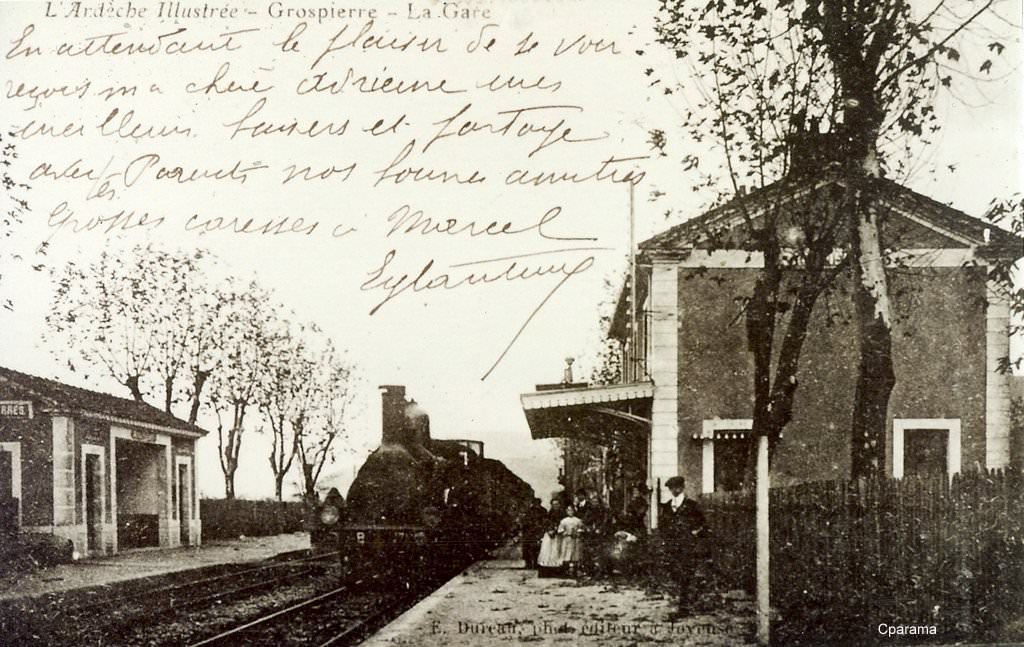 L'Ardèche Illustrée - Grospierre - La Gare
En attendant le plaisir de te voir
reçois ma chère Adrienne mes
meilleurs baisers et partage
avec les Parents nos bonnes amitiés
Grosses caresses à Marcel
RRES
B
E. Dureau, phot. éditeur à Joyeuse
Cparama